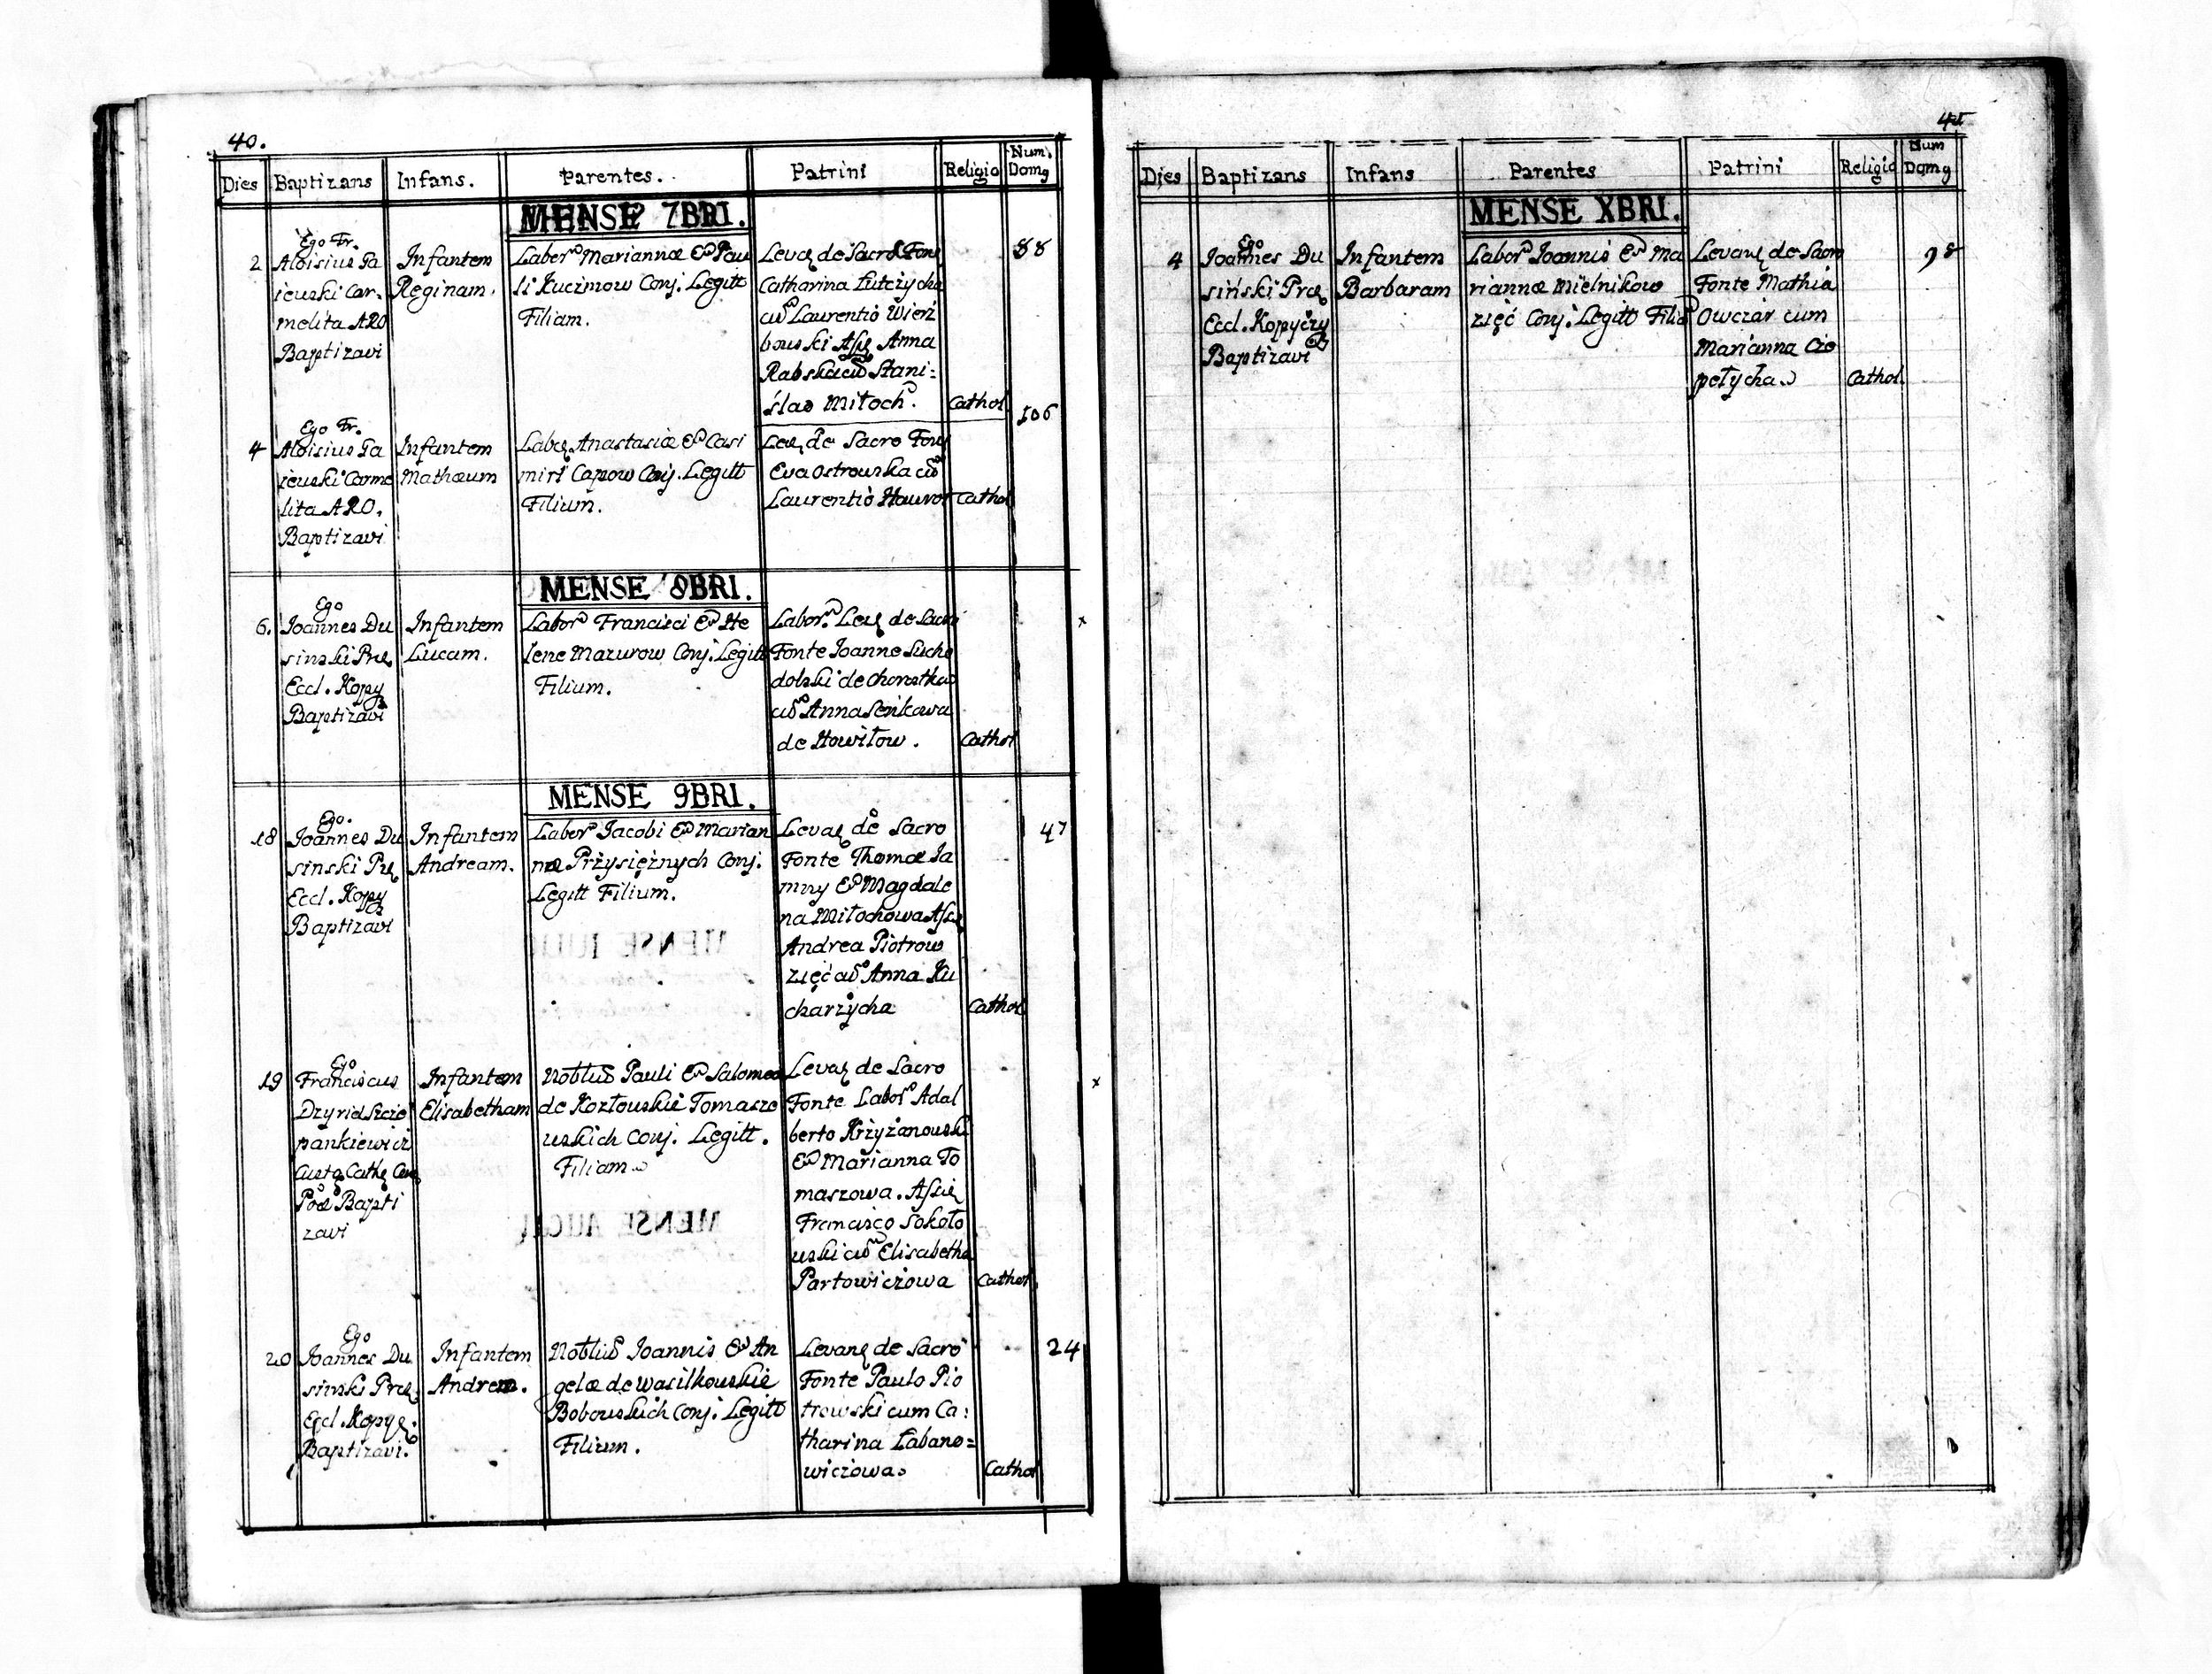 40.
Dies Baptizans Infans. Parentes. Patrini Religio Num. Domg
MENSE 7BRI.
2
Ego Fr.
Aloisius Ga
jewski Car.
melita ARO
Baptizavi
Infantem
Reginam.
Labor Mariannæ & Pau
li Kuczmow Conj. Legitt
Filiam.
Levã de Sacro Fon
Catharina Lutczycha
cũ Laurentio Wierz
bowski Assis Anna
Rabska cũ Stani=
slao Miłoch.
Cathol
88
4
Ego Fr.
Aloisius Ga
jewski Carme
lita ARO.
Baptizavi
Infantem
Mathæum
Labor Anastasiæ & Casi
miri Capow Conj. Legitt
Filium.
Lev de Sacro Fon
Eva Ostrowska cũ
Laurentio
Cathol
106
MENSE 8BRI.
6.
Ego
Joannes Du
sinski Præ
Eccl. Kopy
Baptizavi
Infantem
Lucam.
Labor Francisci & He
lene Mazurow Conj. Legitt
Filium.
Labor. Lev de Sacro
Fonte Joanne Sucho
dolski de Chorostkow
cũ Anna Senkowa
de Howiłow.
Cathol
x
MENSE 9BRI.
18
Ego.
Joannes Du
sinski Præ
Eccl. Kopy
Baptizavi
Infantem
Andream.
Labor Jacobi & Marian
næ Przysiężnych Conj.
Legitt Filium.
Levã de Sacro
Fonte Thoma Ja
mny & Magdale
na Miłochowa Assis
Andrea Piotrow
zięć cũ Anna Ku
charzycha
Cathol
47
19
Ego
Franciscus
Dzyrid Szcze
pankiewicz
Baptizavi
Infantem
Elisabetham
Nobliũ Pauli & Salomea
de Kozłowskie Tomasze
wskich Conj. Legitt.
Filiam
Levã de Sacro
Fonte Labor Adal
berto Krzyżanowski
& Marianna To
maszowa. Assis
Francisco Sokoło
wski cũ Elisabetha
Partowiczowa
Cathol
x
20
Ego
Joannes Du
sinski Præ
Eccl. Kopy
Baptizavi.
Infantem
Andrem.
Nobliũ Joannis & An
gelæ de Wasilkowskie
Bobowskich Conj. Legitt
Filium.
Levanę de Sacro
Fonte Paulo Pio
trowski cum Ca:
tharina Łabano=
wiczowa
Cathol
24
41
Dies Baptizans Infans Parentes Patrini Religio Num Domg
MENSE XBRI.
4
Ego
Joannes Du
siński Præ
Eccl. Kopyczy
Baptizavi
Infantem
Barbaram
Labor Joannis & Ma
riannæ Mielnikow
zięć Conj. Legitt Filiã
Levanę de Sacro
Fonte Mathia
Owczar cum
Marianna Cio
pełycha
Cathol.
98